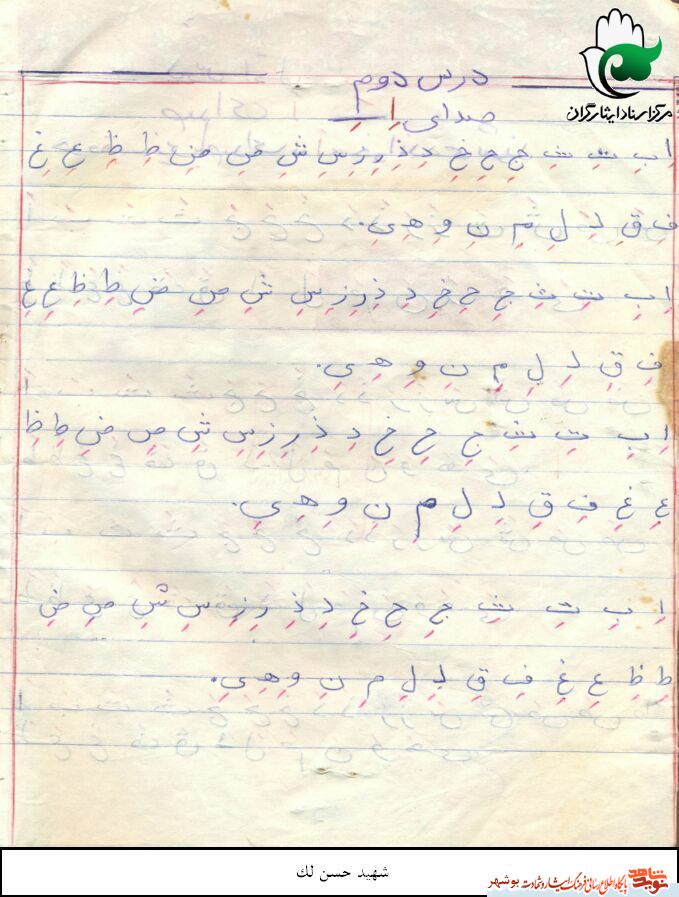 درس دوم
مرکز اسناد ایثارگران
صدای اِ ـِ
اِ بِ تِ ثِ جِ حِ خِ دِ ذِ رِ زِ سِ شِ صِ ضِ طِ ظِ عِ غِ
فِ قِ لِ مِ نِ وِ هِ یِ.
اِ بِ تِ ثِ جِ حِ خِ دِ ذِ رِ زِ سِ شِ صِ ضِ طِ ظِ عِ غِ
فِ قِ لِ مِ نِ وِ هِ یِ.
اِ بِ تِ ثِ جِ حِ خِ دِ ذِ رِ زِ سِ شِ صِ ضِ طِ ظِ
عِ غِ فِ قِ لِ مِ نِ وِ هِ یِ.
اِ بِ تِ ثِ جِ حِ خِ دِ ذِ رِ زِ سِ شِ صِ ضِ
طِ ظِ عِ غِ فِ قِ لِ مِ نِ وِ هِ یِ.
شهید حسن لك
نوید شاهد پایگاه اطلاع رسانی فرهنگ ایثار و شهادت بوشهر